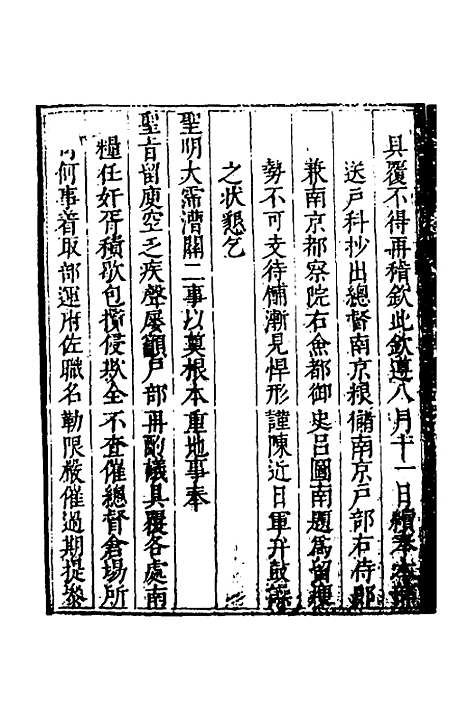 具覆不得再稽欽此欽遵八月十一日續奉
送戶科抄出總督南京粮儲南京戶部右侍郎
兼南京都察院右僉都御史呂圖南題為留
勢不可支待餔漸見悍形謹陳近日軍弁鼓譟
之狀懇乞
聖明大霈漕關二事以奠根本重地事奉
聖旨留庾空乏疾聲屢籲戶部再酌議具覆各處南
糧任奸胥積歇包攬侵欺全不查催總督倉場所
何事着取部運府佐職名勒限嚴催過期提參